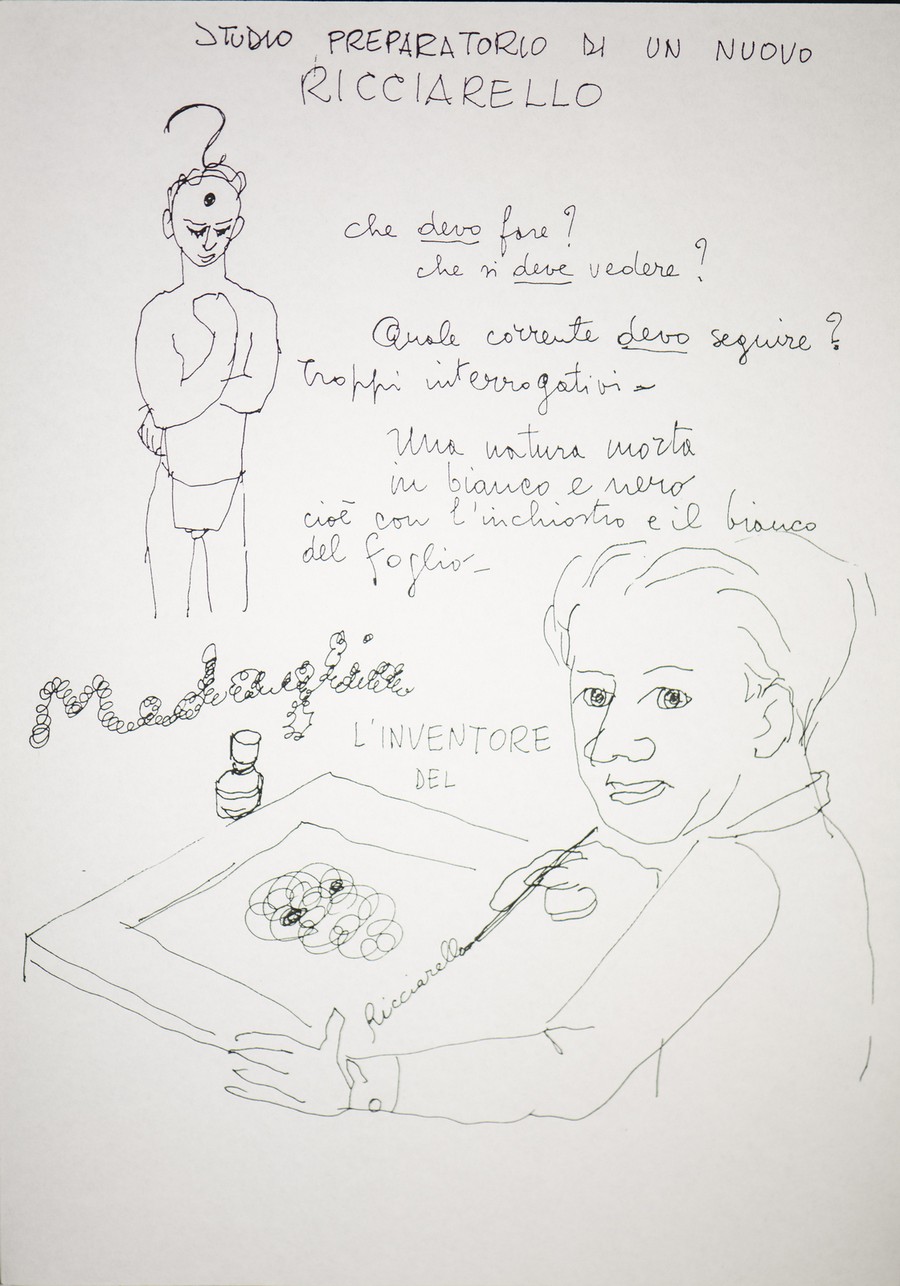 STUDIO PREPARATORIO DI UN NUOVO
RICCIARELLO
?
che devo fare?
che si deve vedere?
Quale corrente devo seguire?
Troppi interrogativi-
Una natura morta
in bianco e nero
cioè con l'inchiostro e il bianco
del foglio-
L'INVENTORE
DEL
Ricciarello